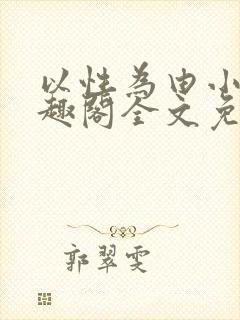 以性为由小
趣阁全文免
郭翠雯